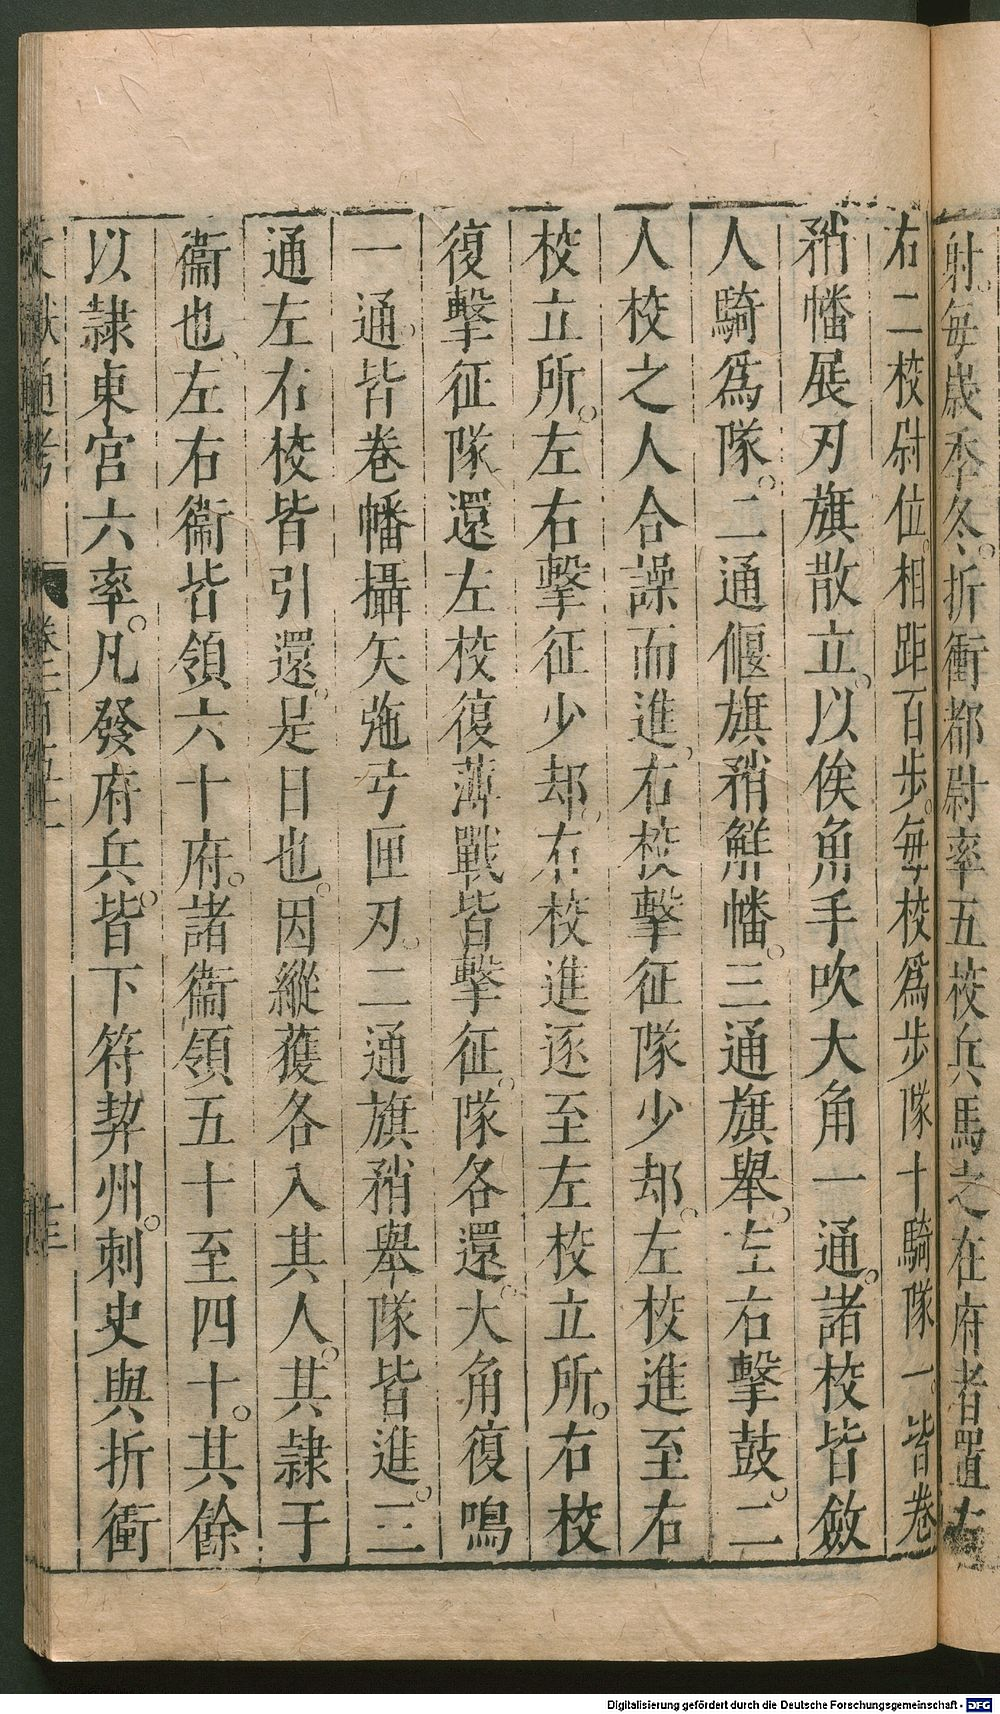 射。每歲季冬。折衝都尉率五校兵馬之在府者置左
右二校尉位。相距百步。每校爲步隊十騎隊一。皆卷
矟幡展刃旗散立。以俟角手吹大角一通。諸校皆斂
人騎爲隊。二通偃旗矟觧幡。三通旗舉。左右擊鼓。二
人校之人合譟而進。右校擊征隊少却。左校進至右
校立所。左右擊征少却。右校進逐至左校立所。右校
復擊征隊還左校復薄戰皆擊征。隊各還。大角復鳴
一通。皆卷幡攝矢弛弓匣刃。二通旗矟舉隊皆進。三
通左右校皆引還。是日也。因縱獲各入其人。其隷于
衞也。左右衞皆領六十府。諸衞領五十至四十。其餘
以隷東宮六率。凡發府兵。皆下符契州。刺史與折衝
文獻通考 卷一百五十一
Digitalisierung gefördert durch die Deutsche Forschungsgemeinschaft - DFG